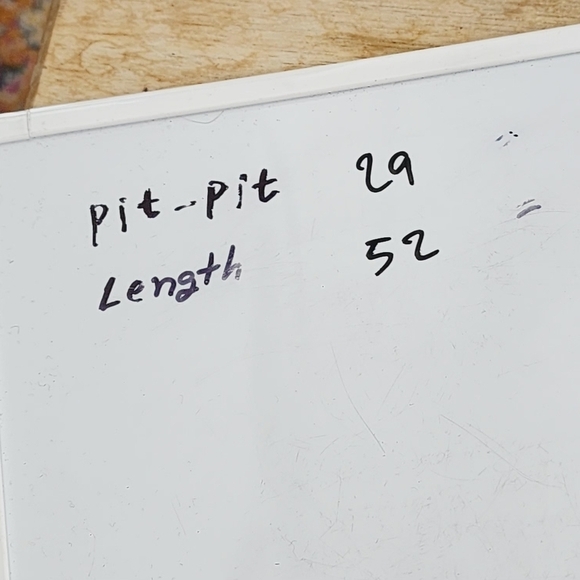 Pit-Pit 29
Length 52